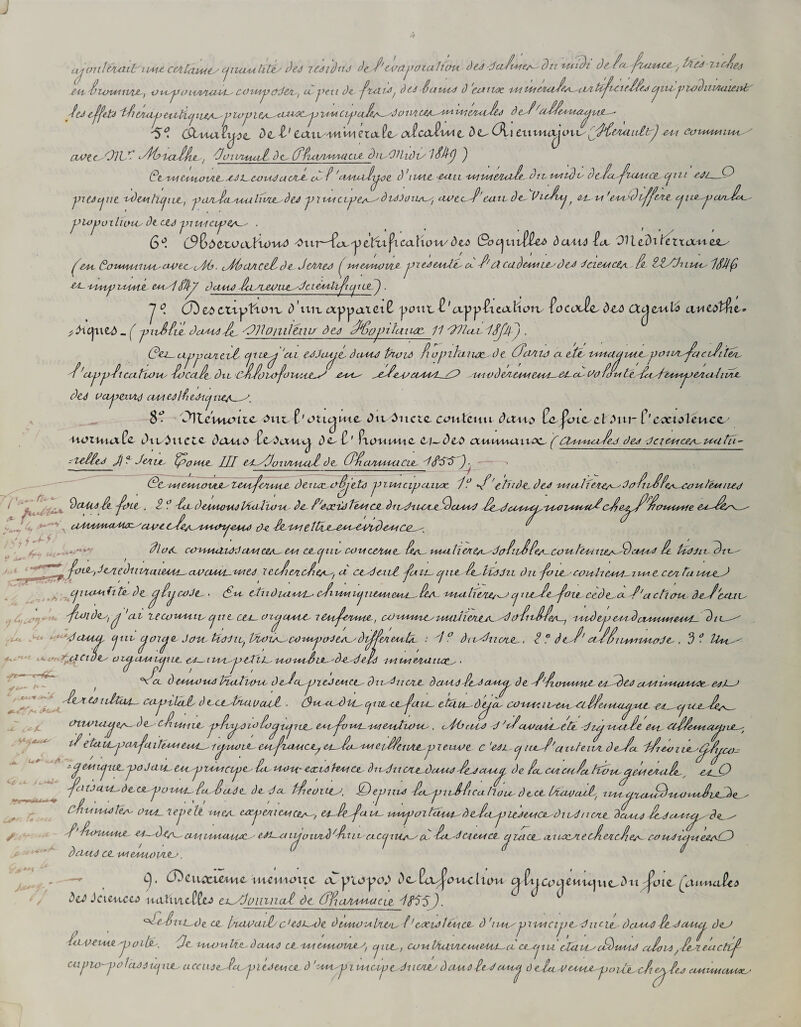 4
ajouterait une certaine quantité des résidus de l'évaporation des salines du midi de la france, très riches
en bromure, on pourrait composer, à peu de frais, des bains d'eaux minérales artificielles qui produiraient
les effets thérapeutiques propres aux principales sources minérales de l'allemagne.
5° Analyse de l'eau minérale alcaline de Rieumajou (Hérault) en commun
avec Mr. Mialhe, Journal de Pharmacie du Midi 1849)
Ce mémoire est consacré à l'analyse d'une eau minérale du midi de la france qui est
presque identique, par la nature des principes dissous, avec l'eau de Vichy, et n'en diffère que par la
proportion de ces principes.
6° Observations sur la pétrification des Coquilles dans la Méditerranée
(en Commun avec M. Marcel de Serres (mémoire présenté à l'académie des sciences le 22 Juin 1846
et imprimé en 1847 dans la revue Scientifique).
7° Description d'un appareil pour l'application locale des agents anesthé-
siques - (publié dans le Moniteur des Hopitaux 11 Mai 1854).
Cet appareil que j'ai essayé dans trois hôpitaux de Paris a été imaginé pour faciliter
l'application locale du Chloroforme en élevant modérément et à volonté la température
des vapeurs anesthésiques.
8° Mémoire sur l'origine du sucre contenu dans le foie et sur l'existence
normale du sucre dans le sang de l'homme et des animaux (annales des sciences natu-
relles 4e Série Tome III et Journal de Pharmacie 1855).
Ce mémoire renferme deux objets principaux 1° L'étude des matières solubles contenues
dans le foie. 2° la démonstration de l'existence du sucre dans le sang normal chez l'homme et les
animaux avec les moyens de le mettre en évidence.
Nos connaissances en ce qui concerne les matières solubles contenues dans le tissu du
foie, se réduiraient avant mes recherches, à ce seul fait que le tissu du foie contient une certaine
quantité de glycose. En étudiant chimiquement les matières que le foie cède à l'action de l'eau
froide, j'ai reconnu que cet organe renferme, comme matières solubles, indépendamment du
sang qui gorge son tissu, trois composés différents : 1° du Sucre. 2° de l'albuminose. 3° Un
acide organique et un petit nombre de sels minéraux.
La démonstration de la présence du Sucre dans le sang de l'homme et des animaux est
le résultat capital de ce travail. On a dit que ce fait était déjà connu en allemagne et que les
ouvrages de chimie physiologique en font mention. Mais s'il avait été signalé en allemagne,
il était parfaitement ignoré en france, et la meilleure preuve c'est que l'auteur de la théorie glyco-
génique posait en principe la non-existence du Sucre dans le sang de la circulation générale, et
faisait de ce point la base de sa théorie. Depuis la publication de ce travail, un grand nombre de
chimistes ont répété mes expériences, et le fait important de la présence du Sucre dans le sang de
l'homme et des animaux est aujourd'hui acquis à la science grâce aux recherches consignées
dans ce mémoire.
9. Deuxième mémoire à propos de la fonction glycogénique du foie (annales
des Sciences naturelles et Journal de Pharmacie 1855).
Le but de ce travail c'est de démontrer l'existence d'un principe sucré dans le sang de
la veine porte. Je montre dans ce mémoire, que, contrairement à ce qui était admis alors, le réactif
cupro-potassique accuse la présence d'un principe sucré dans le sang de la veine porte chez les animaux